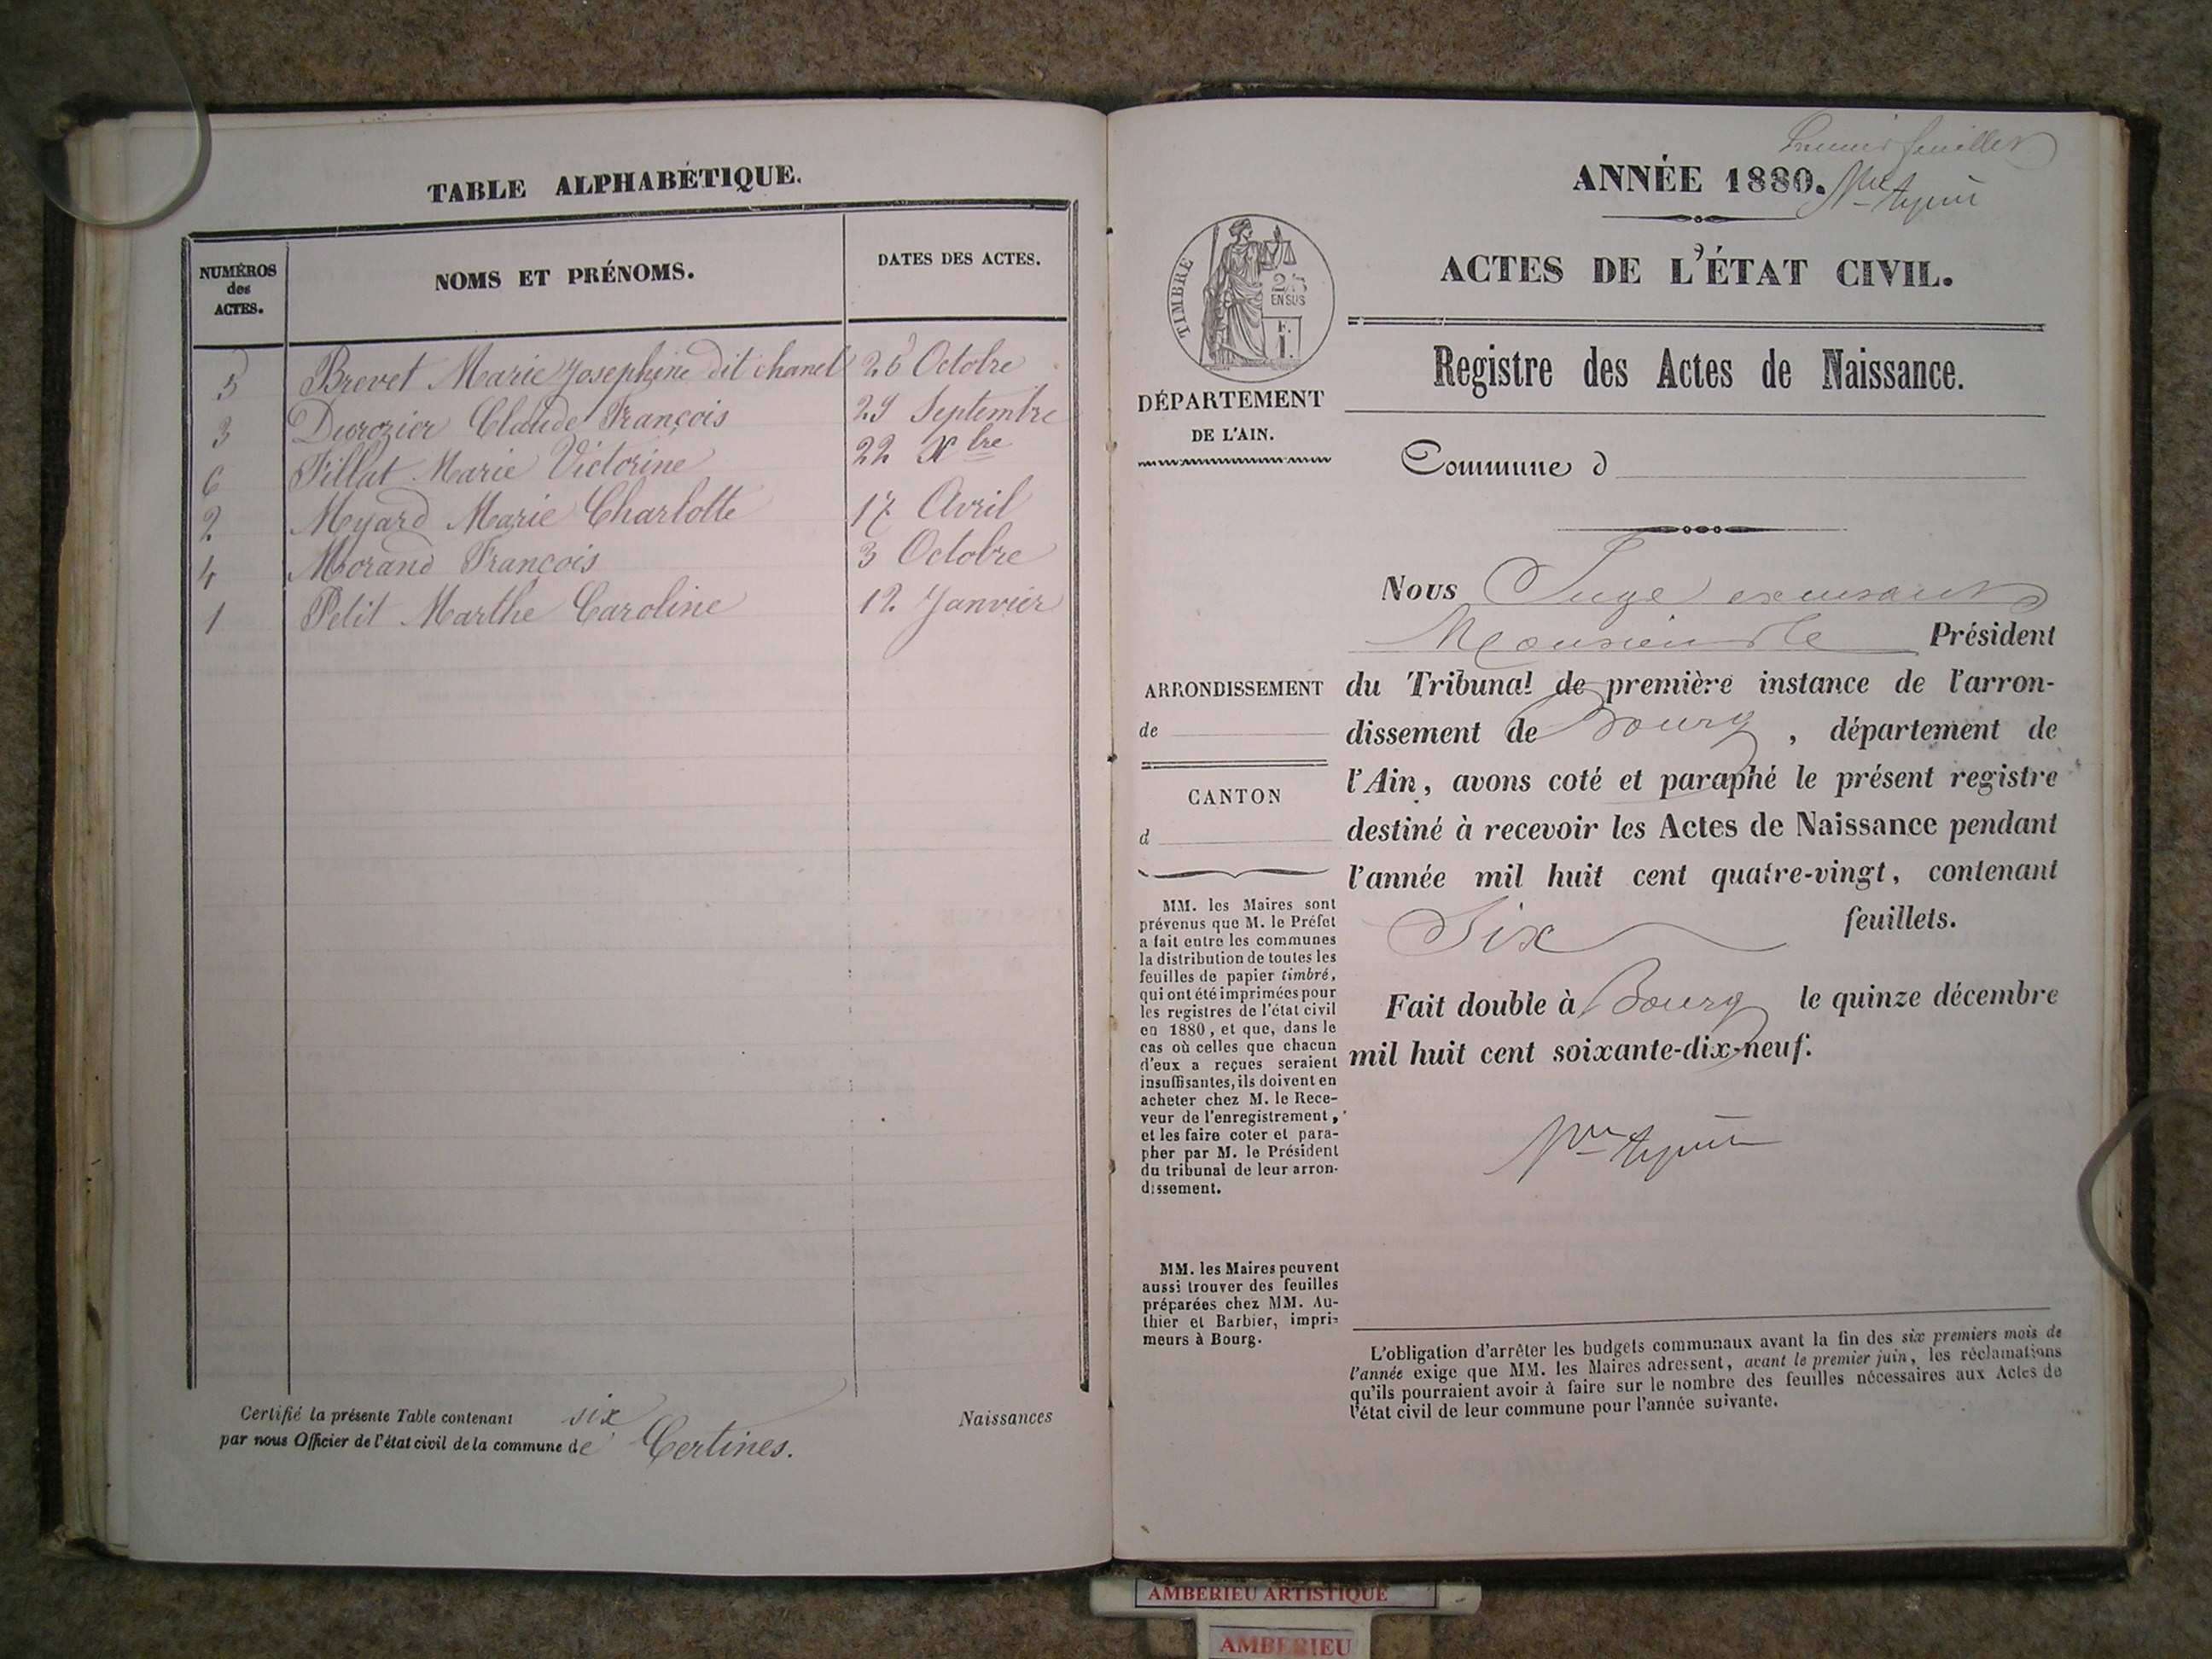 TABLE ALPHABÉTIQUE.
NUMÉROS des ACTES.
NOMS ET PRÉNOMS.
DATES DES ACTES.
5 Brevet Marie Josephine dit chanel 26 Octobre
3 Durozier Claude François 29 Septembre
6 Fillat Marie Victorine 22 Xbre
2 Myard Marie Charlotte 17 Avril
4 Morand François 3 Octobre
1 Petit Marthe Caroline 12 Janvier
Certifié la présente Table contenant six Naissances
par nous Officier de l'état civil de la commune de Certines.
Premier feuillet
ANNÉE 1880.
ACTES DE L'ÉTAT CIVIL.
TIMBRE
EN SUS
Registre des Actes de Naissance.
DÉPARTEMENT
DE L'AIN.
Commune d
Nous Juge
Monsieur le Président
du Tribunal de première instance de l'arron-
dissement de Bourg, département de
l'Ain, avons coté et paraphé le présent registre
destiné à recevoir les Actes de Naissance pendant
l'année mil huit cent quatre-vingt, contenant
Six feuillets.
Fait double à Bourg le quinze décembre
mil huit cent soixante-dix-neuf.
ARRONDISSEMENT
de
CANTON
d
MM. les Maires sont
prévenus que M. le Préfet
a fait entre les communes
la distribution de toutes les
feuilles de papier timbré,
qui ont été imprimées pour
les registres de l'état civil
en 1880, et que, dans le
cas où celles que chacun
d'eux a reçues seraient
insuffisantes, ils doivent en
acheter chez M. le Rece-
veur de l'enregistrement,
et les faire coter et para-
pher par M. le Président
du tribunal de leur arron-
dissement.
MM. les Maires peuvent
aussi trouver des feuilles
préparées chez MM. Au-
thier et Barbier, impri-
meurs à Bourg.
L'obligation d'arrêter les budgets communaux avant la fin des six premiers mois de
l'année exige que MM. les Maires adressent, avant le premier juin, les réclamations
qu'ils pourraient avoir à faire sur le nombre des feuilles nécessaires aux Actes de
l'état civil de leur commune pour l'année suivante.
AMBERIEU ARTISTIQUE
AMBERIEU